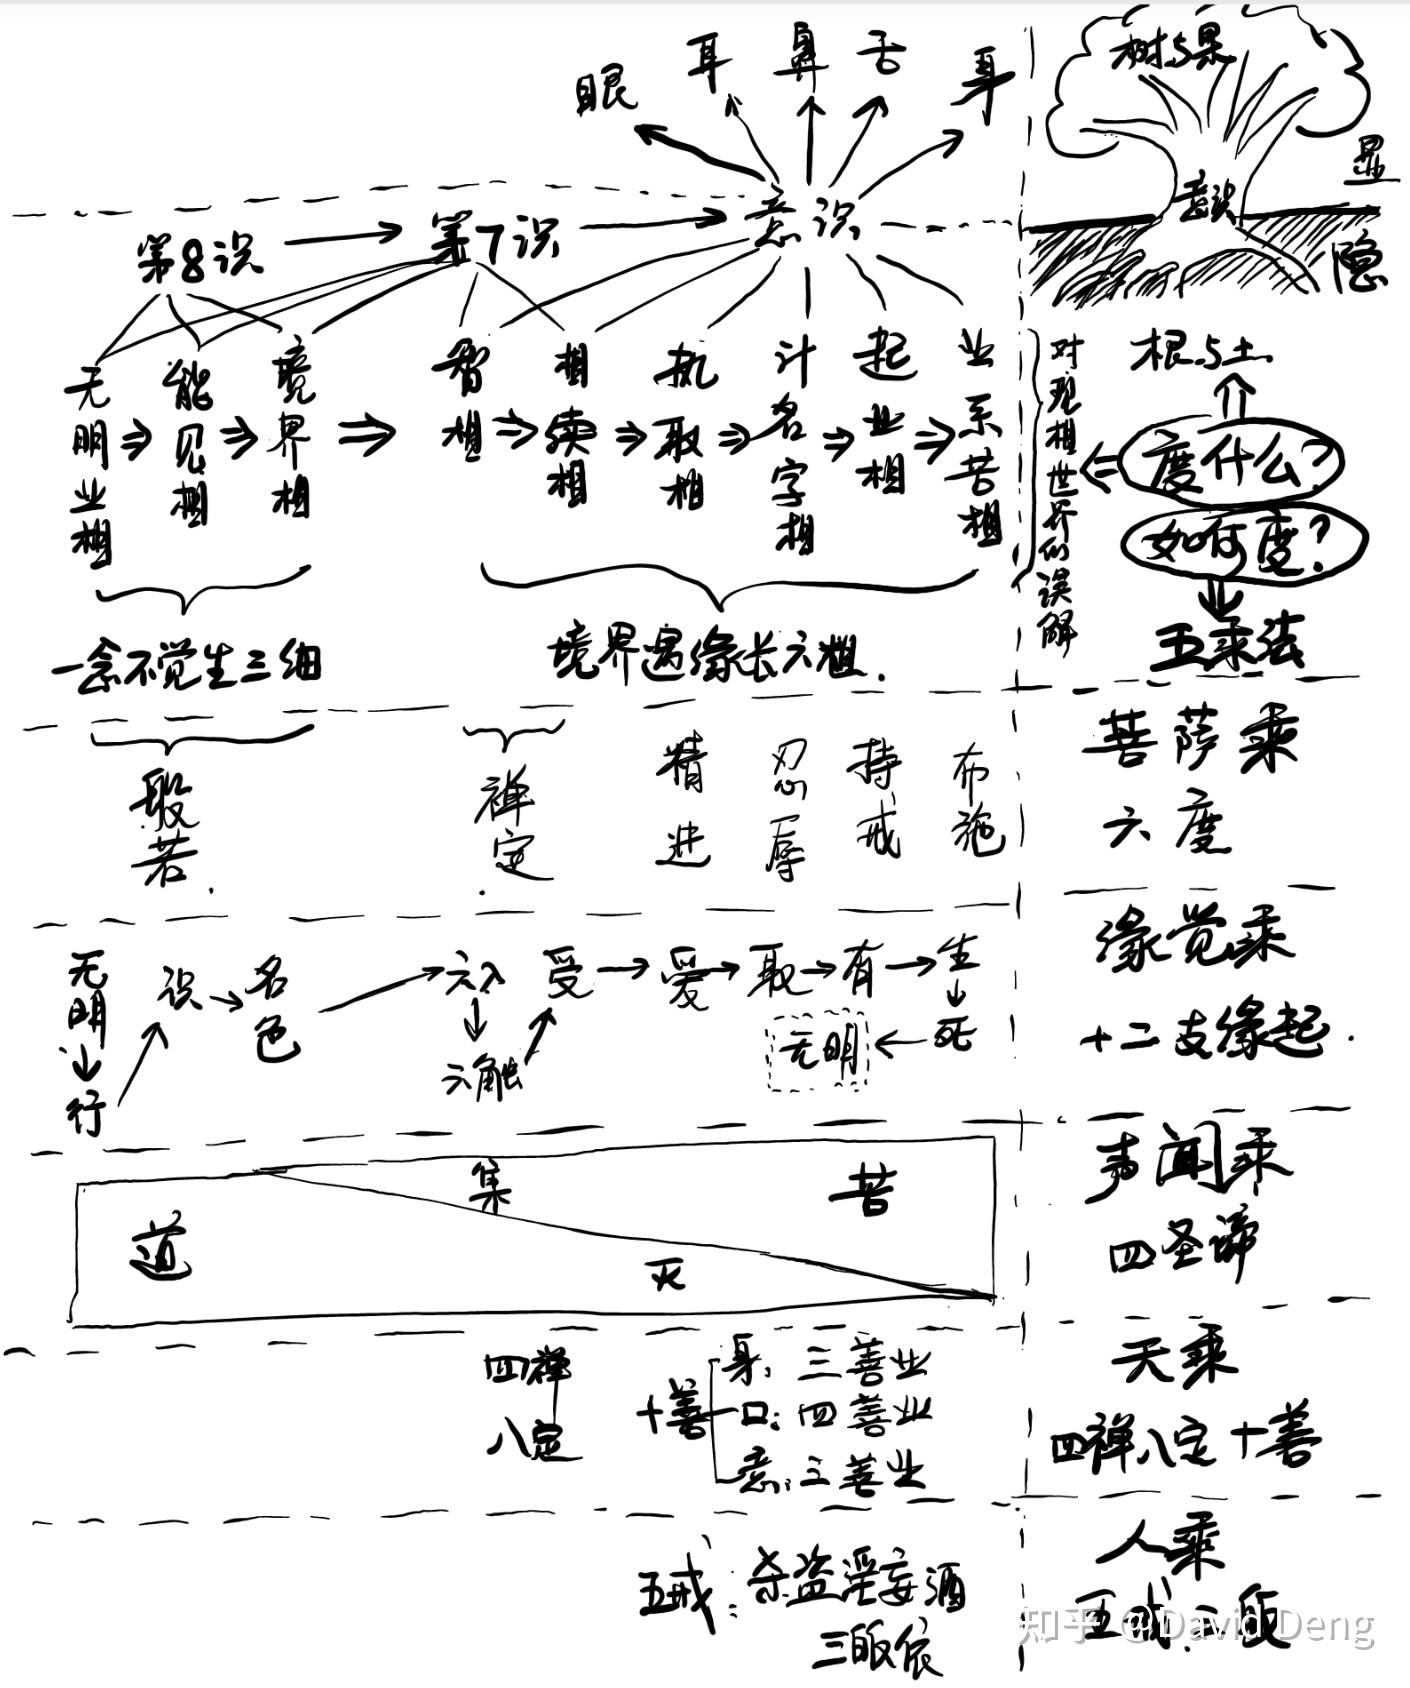 眼 耳 鼻 舌 耳
树与果
显
意识
隐
第8识 第7识 意识
无明业相
能见相
境界相
智相
相续相
执取相
计名字相
起业相
业系苦相
对现相世界的误解
根与土
度什么?
如何度?
五乘法
一念不觉生三细
境界遇缘长六粗.
般若.
禅定
精进
忍辱
持戒
布施
菩萨乘
六度
无明 行 识 名色 六入 六触 受 爱 取 有 生 死 无明
缘觉乘
十二支缘起.
道 集 灭 苦
声闻乘
四圣谛
四禅
八定
十善
身: 三善业
口: 四善业
意: 三善业
天乘
四禅八定十善
五戒: 杀盗淫妄酒
三皈依
人乘
五戒.三皈
知乎 @David Deng